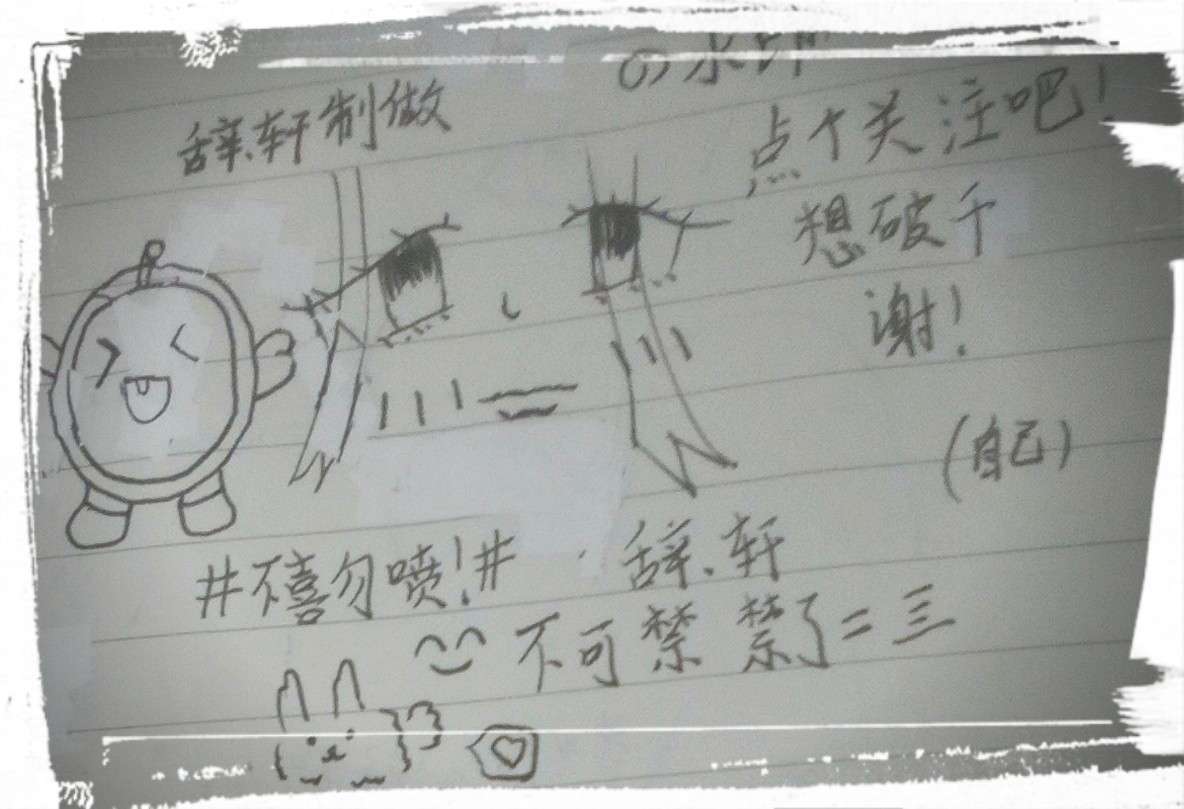 の水印
辞.轩制做
点个关注吧!
想破千
谢!
(自己)
#不喜勿喷!#
辞.轩
不可禁禁了=三